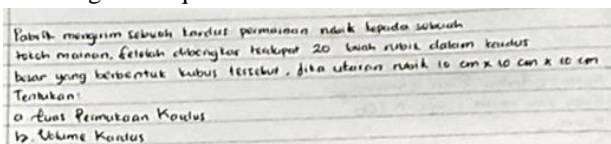 Pabrik mengirim sebuah kardus permainan rubik kepada sebuah
tokoh mainan. Setelah dibongkar terdapat 20 buah rubik dalam kardus
besar yang berbentuk kubus tersebut. Jika ukuran rubik 10 cm x 10 cm x 10 cm
Tentukan:
a Luas Permukaan Kardus
b. Volume Kardus